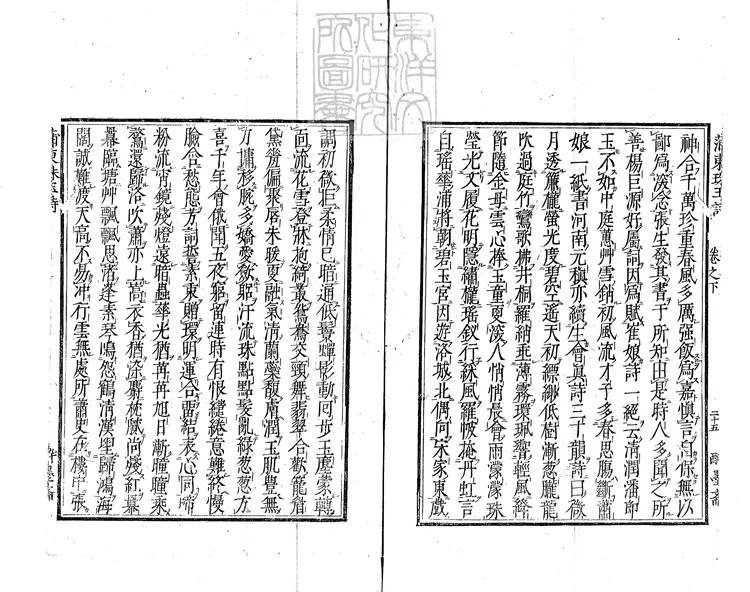 東洋文
化研究
所圖書
蒲東珠玉詩　卷之下　二十五
神合千萬珍重春風多厲强飯爲嘉慎言自保無以
鄙爲深念張生發其書于所知由是時人多聞之所
善楊巨源好屬詞因爲賦崔娘詩一絕云清潤潘郎
玉不如中庭蕙艸雪銷初風流才子多春思膓斷蕭
娘一紙書河南元稹亦續生會真詩三十韻詩曰微
月透簾櫳螢光度碧空遥天初縹緲低樹漸葱朧龍
吹過庭竹鸞歌拂井桐羅綃垂薄霧環珮響輕風絳
節隨金母雲心捧玉童更深人悄悄晨會雨濛濛珠
瑩光文履花明隱繡櫳瑶釵行綵鳳羅帔掩丹虹言
自瑶華浦將朝碧玉宮因遊洛城北偶向宋家東戲
謂初微拒柔情已暗通低鬟蟬影動囘步玉塵蒙轉
面流花雪登牀抱綺叢鴛鴦交頸舞翡翠合歡籠眉
黛羞偏聚唇朱暖更融氣清蘭蘂馥膚潤玉肌豐無
力慵移腕多嬌愛歛躬汗流珠點點髮亂綠葱葱方
喜千年會俄聞五夜窮留連時有恨繾綣意難終慢
臉含愁態芳詞誓素衷贈環明運合留結表心同啼
粉流宵鏡殘燈遠暗蟲華光猶苒苒旭日漸曈曈乘
鶩還歸洛吹簫亦上嵩衣香猶染麝枕膩尚殘紅羃
羃臨塘艸飄飄思渚蓬素琴鳴怨鶴清漢望歸鴻海
闊誠難渡天高不易冲行雲無處所蕭史在樓中張
蒲東珠玉詩